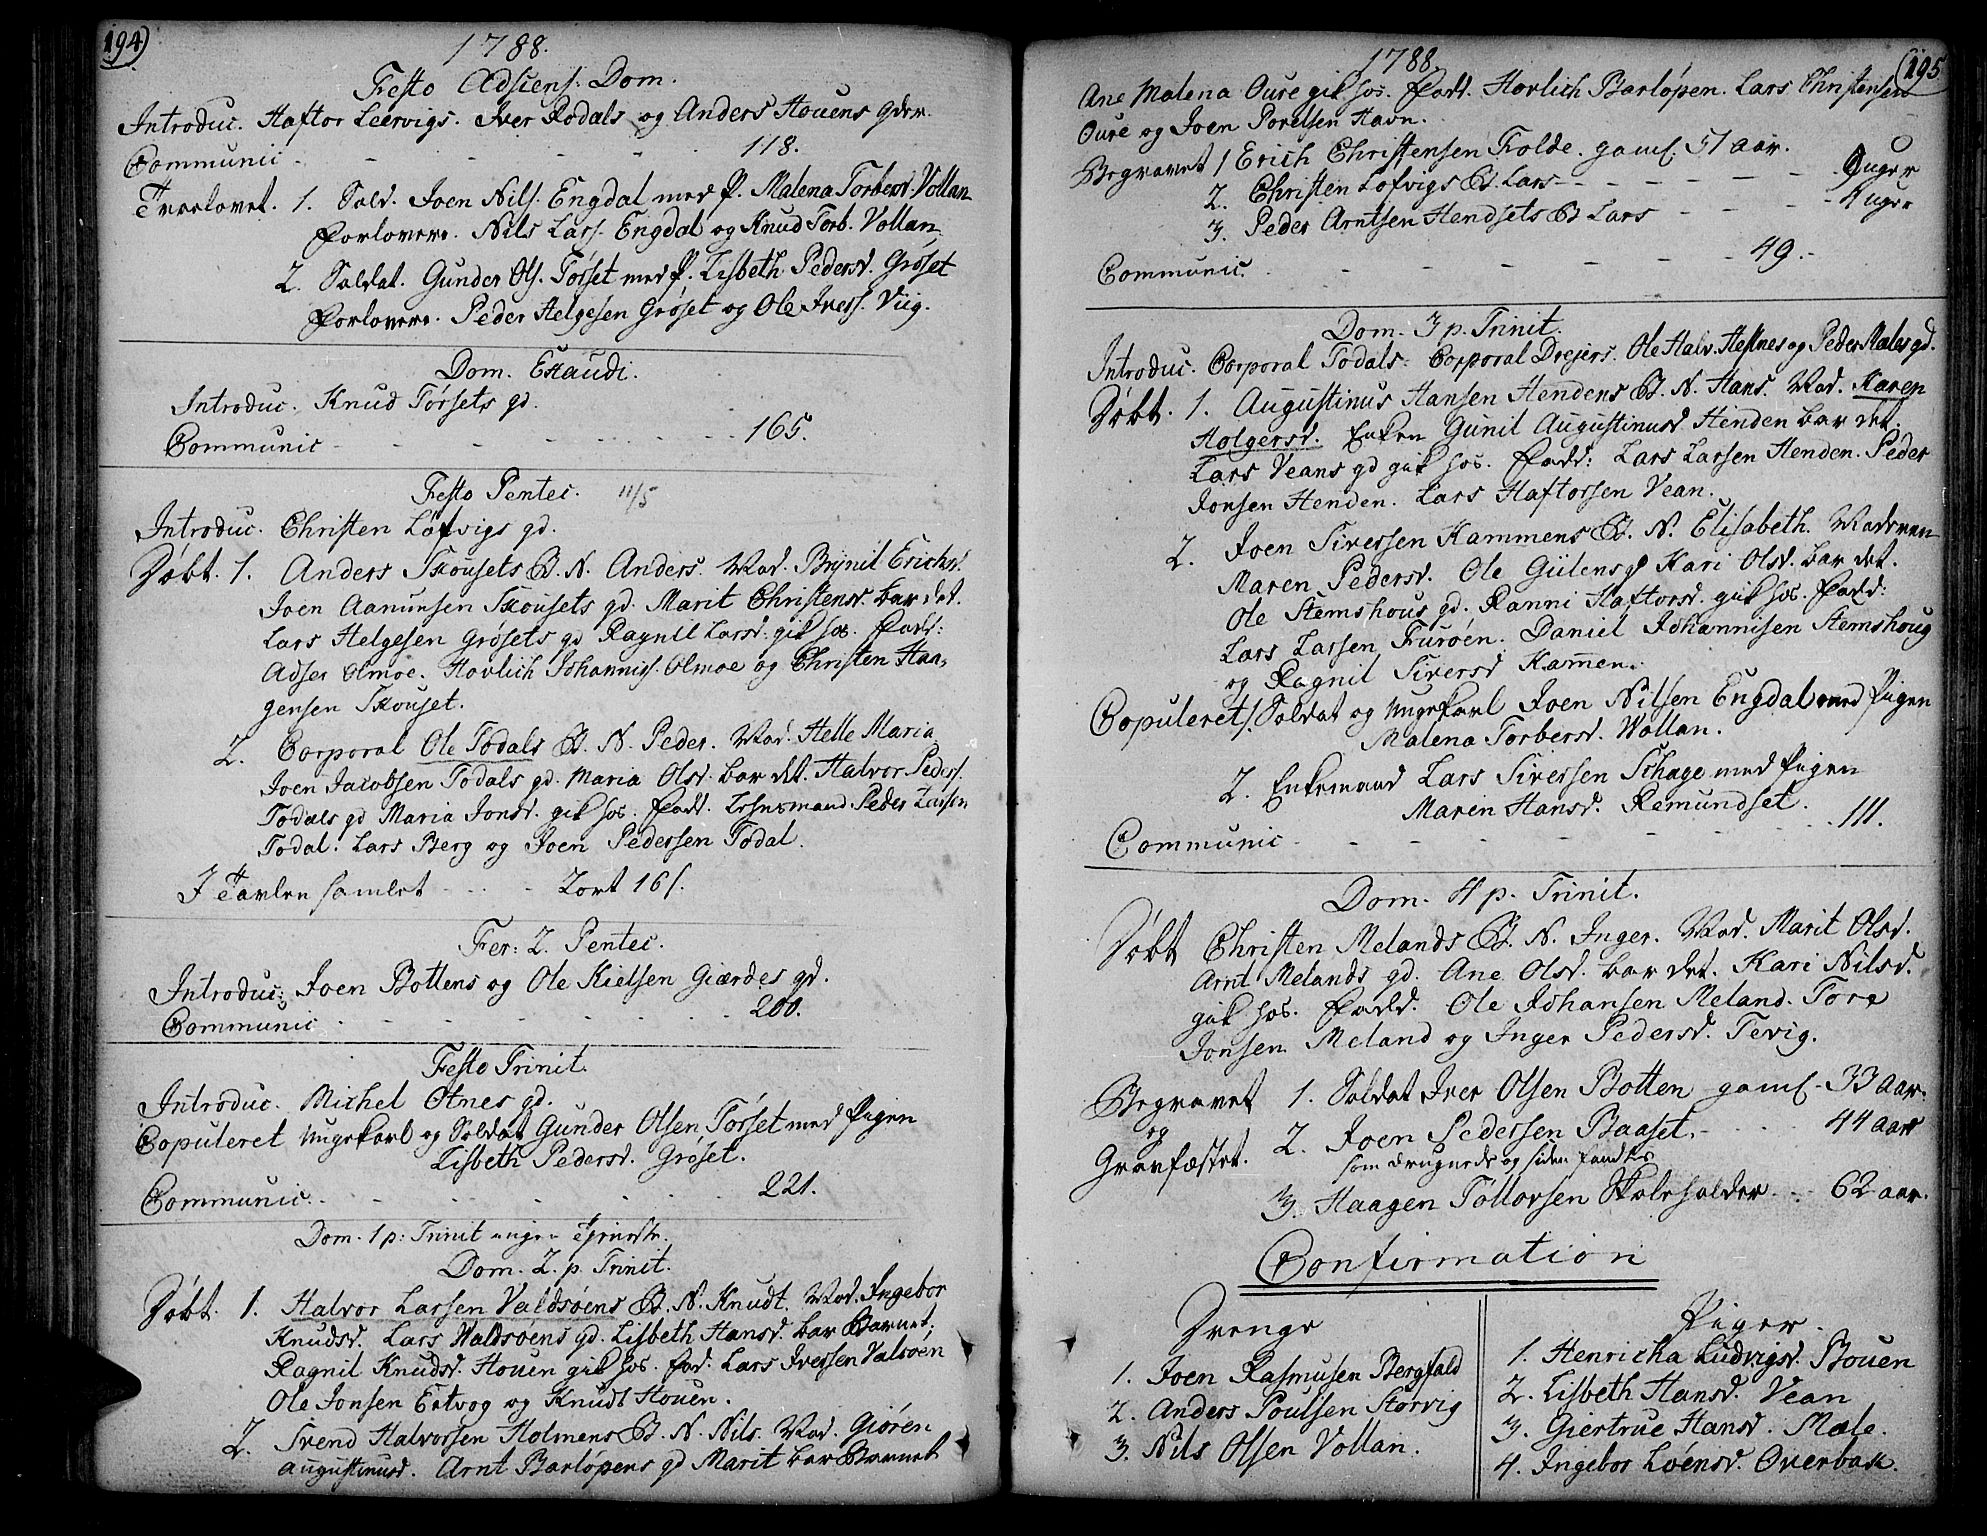 194)
1788.
Festo Adsiens. Dom.
Introduc. Haftor Leervigs. Iver Rodals og Anders Houens gder.
Communic - - - - - - 118.
Troelovet. 1. Sold. Joen Nils. Engdal med P. Malena Torbersd. Vollan
Forlovere. Nils Lars. Engdal og Knud Torb. Vollan
2. Soldat. Gunder Ols. Torset med P. Lisbeth Pedersd. Grøset
Forlovere. Peder Helgesen Grøset og Ole Ivers. Viig.
Dom. Exaudi.
Introduc. Knud Tørsets gd.
Communic - - - - - - 165.
Festo Pentec. 11/5
Introduc. Christen Løfvigs gd.
Døbt. 1. Anders Skousets B. N. Anders. Mod. Brynil Erichsd.
Joen Aanunsen Skousets gd. Marit Christensd. bar det.
Lars Helgesen Grøsets gd Ragnil Larsd: gik hos. Fadd:
Adser Olmoe. Hovlich Johannis. Olmoe og Christen Haa-
gensen Skouset.
2. Corporal Ole Todals B. N. Peder. Mod. Helle Maria
Joen Jacobsen Todals gd. Maria Olsd. bar det. Halvor Peders.
Todals gd Maria Jonsd. gik hos. Fadd. Lehnsmand Peder Larsen
Todal. Lars Berg og Joen Pedersen Todal.
I Tavlen samlet - - - 2 ort 16 s.
Fer: 2. Pentec.
Introduc: Joen Bottens og Ole Kielsen Giærdes gd.
Communic - - - - - - 200.
Festo Trinit.
Introduc. Michel Otnes gd.
Copuleret Ungekarl og Soldat Gunder Olsen Torset med Pigen
Lisbeth Pedersd. Grøset.
Communic. - - - - - - 221.
Dom. 1 p: Trinit ingen Tjeneste.
Dom. 2. p. Trinit.
Døbt. 1. Halvor Larsen Valdsøens B. N. Knudt. Mod. Ingebor
Knudsd. Lars Waldsøens gd. Lisbeth Hansd. bar Barnet.
Ragnil Knudsd. Houen gik hos. Fad. Lars Iversen Valsøen
Ole Jonsen Ertvog og Knudt Houen.
2. Svend Halvorsen Holmens B. N. Nils. Mod. Giøren
Augustinusd. Arnt Barløpens gd Marit bar Barnet
1788.
195
Ane Malena Oure gik hos. Fadd. Hovlich Barløpen. Lars Christensen
Oure og Joen Porelsen Havn.
Begravet 1 Erich Christensen Folde. gaml. 51 aar.
2. Christen Løfvigs B. Lars - - - - - uger
3. Peder Arntsen Hendsets B Lars - - - - uger
Communic. - - - - - - 49.
Dom. 3 p. Trinit.
Introduc. Corporal Todals. Corporal Drejers. Ole Halv. Hestnes og Peder Mæles gd.
Døbt. 1. Augustinus Hansen Hendens B. N. Hans. Mod. Karen
Holgersd. Enken Gunil Augustinusd Henden bar det.
Lars Veans gd gik hos. Fadd: Lars Larsen Henden. Peder
Jonsen Henden. Lars Haftorsen Vean.
2. Joen Siversen Kammens B. N. Elisabeth. Moderen
Maren Pedersd. Ole Gülens gd Kari Olsd. bar det.
Ole Stemshous gd. Ranni Haftorsd. gik hos. Fadd:
Lars Larsen Furøen. Daniel Johannisen Stemshoug
og Ragnil Siversd Kam̄en.
Copuleret 1. Soldat og Ungekarl Joen Nilsen Engdal med Pigen
Malena Torbersd. Wollan.
2. Enkemand Lars Siversen Schage med Pigen
Maren Hansd. Remundset.
Communic - - - - - - 111.
Dom. 4 p. Trinit.
Døbt Christen Melands B. N. Inger. Mod. Marit Olsd.
Arnt Melands gd. Ane Olsd. bar det. Kari Nilsd.
gik hos. Fadd. Ole Johansen Meland. Tore
Jonsen Meland og Inger Pedersd. Tevig.
Begravet 1. Soldat Iver Olsen Botten gaml. 33 aar.
og 2. Joen Pedersen Baaset. - - - 44 aar
Gravfæstet. som druknede og siden fandtes
3. Haagen Tollovsen Skoleholder - - 62 aar.
Confirmation
Drenge
1. Joen Rasmusen Bergfald
2. Anders Poulsen Storvig
3. Nils Olsen Vollan.
Piger.
1. Henricha Ludvigsd. Bouen
2. Lisbeth Hansd. Vean
3. Giertrue Hansd. Mæle.
4. Ingebor Løensd. Overbak.